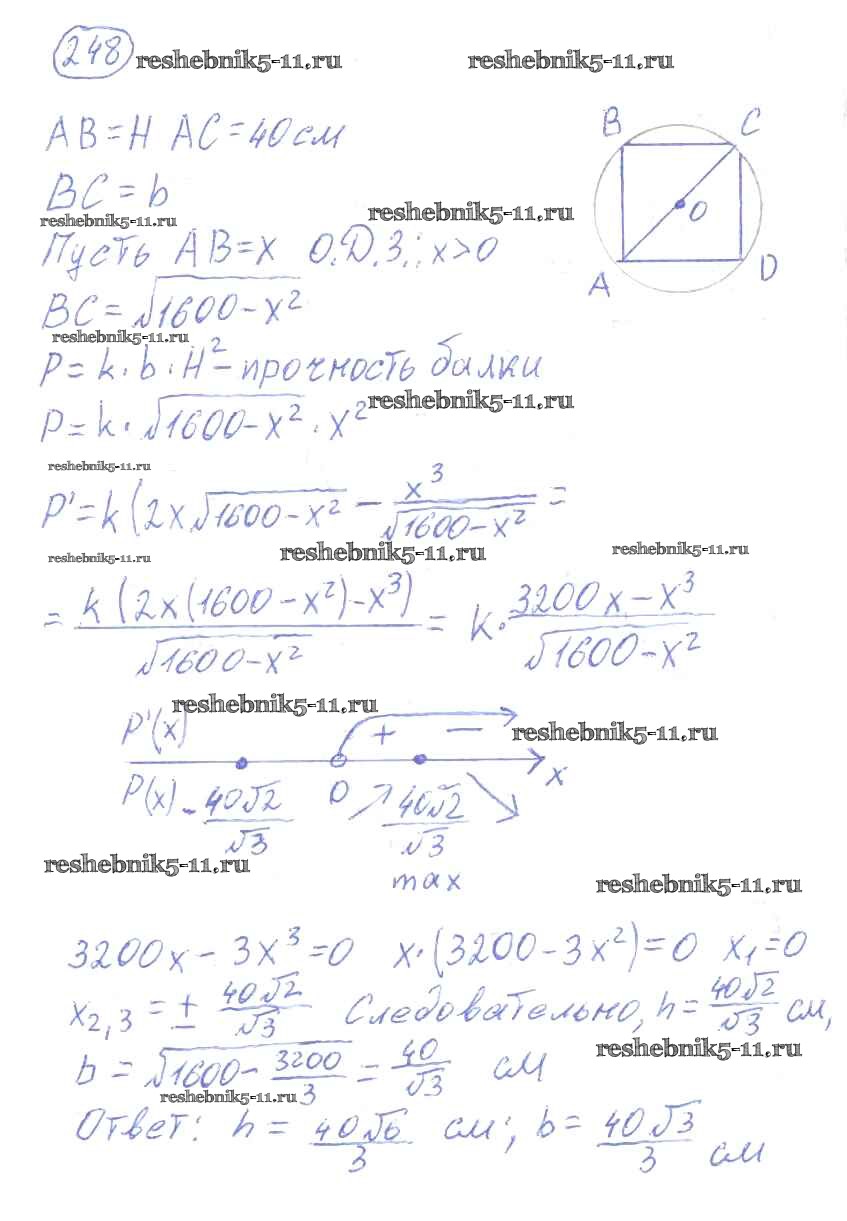 248 reshebnik5-11.ru reshebnik5-11.ru
AB = H AC = 40 см
BC = b
reshebnik5-11.ru reshebnik5-11.ru
Пусть AB = x О.Д.З.: x > 0
BC = √(1600 - x²)
reshebnik5-11.ru
P = k · b · H² - прочность балки
reshebnik5-11.ru
P = k · √(1600 - x²) · x²
reshebnik5-11.ru
P' = k (2x√(1600 - x²) - x³/√(1600 - x²) =
reshebnik5-11.ru reshebnik5-11.ru reshebnik5-11.ru
= k (2x(1600 - x²) - x³)/√(1600 - x²) = k · (3200x - x³)/√(1600 - x²)
reshebnik5-11.ru
P'(x) + - reshebnik5-11.ru
x
P(x) - 40√2/√3 0 40√2/√3
reshebnik5-11.ru
max reshebnik5-11.ru
3200x - 3x³ = 0 x · (3200 - 3x²) = 0 x₁ = 0
x₂,₃ = ± 40√2/√3 Следовательно, h = 40√2/√3 см,
reshebnik5-11.ru
b = √(1600 - 3200/3) = 40/√3 см
reshebnik5-11.ru
Ответ: h = 40√6/3 см; b = 40√3/3 см
B C
O
A D